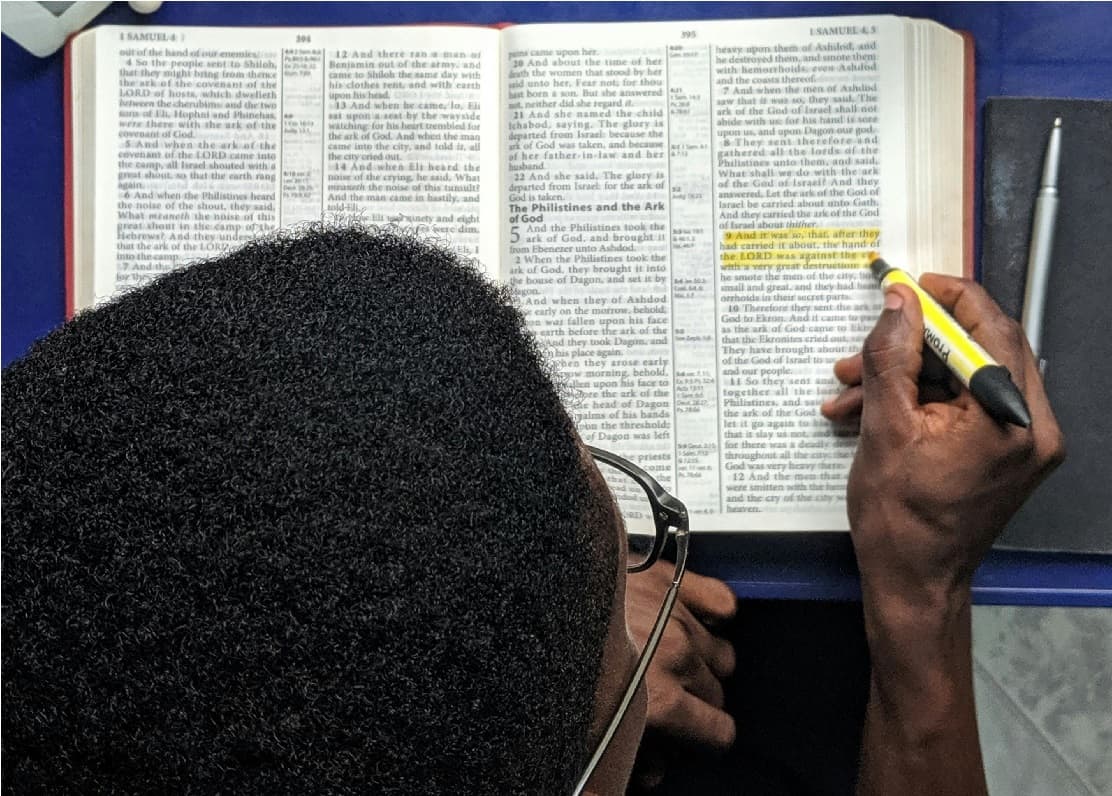 1 SAMUEL 4
394
out of the hand of our enemies.
4 So the people sent to Shiloh,
that they might bring from thence
the ark of the covenant of the
LORD of hosts, which dwelleth
between the cherubims: and the two
sons of Eli, Hophni and Phinehas,
were there with the ark of the
covenant of God.
5 And when the ark of the
covenant of the LORD came into
the camp, all Israel shouted with a
great shout, so that the earth rang
again.
6 And when the Philistines heard
the noise of the shout, they said,
What meaneth the noise of this
great shout in the camp of the
Hebrews? And they
that the ark of the LORD
into the camp.
7 And the
for they
12 And there ran a man of
Benjamin out of the army, and
came to Shiloh the same day with
his clothes rent, and with earth
upon his head.
13 And when he came, lo, Eli
sat upon a seat by the wayside
watching: for his heart trembled for
the ark of God. And when the man
came into the city, and told it, all
the city cried out.
14 And when Eli heard the
noise of the crying, he said, What
meaneth the noise of this tumult?
And the man came in hastily, and
told Eli.
Eli was ninety and eight
were dim,
395
1 SAMUEL 4, 5
pains came upon her.
20 And about the time of her
death the women that stood by her
said unto her, Fear not; for thou
hast born a son. But she answered
not, neither did she regard it.
21 And she named the child
Ichabod, saying, The glory is
departed from Israel: because the
ark of God was taken, and because
of her father-in-law and her
husband.
22 And she said, The glory is
departed from Israel: for the ark of
God is taken.
The Philistines and the Ark
of God
5 And the Philistines took the
ark of God, and brought it
from Ebenezer unto Ashdod.
2 When the Philistines took the
ark of God, they brought it into
the house of Dagon, and set it by
Dagon.
And when they of Ashdod
early on the morrow, behold,
was fallen upon his face
earth before the ark of the
And they took Dagon, and
his place again.
when they arose early
morning, behold,
fallen upon his face to
the ark of the
head of Dagon
palms of his hands
upon the threshold;
of Dagon was left
priests
come
the
heavy upon them of Ashdod, and
he destroyed them, and smote them
with hemorrhoids, even Ashdod
and the coasts thereof.
7 And when the men of Ashdod
saw that it was so, they said, The
ark of the God of Israel shall not
abide with us: for his hand is sore
upon us, and upon Dagon our god.
8 They sent therefore and
gathered all the lords of the
Philistines unto them, and said,
What shall we do with the ark
of the God of Israel? And they
answered, Let the ark of the God of
Israel be carried about unto Gath.
And they carried the ark of the God
of Israel about thither.
9 And it was so, that, after they
had carried it about, the hand of
the LORD was against the
with a very great destruction:
he smote the men of the city,
small and great, and they had
orrhoids in their secret parts.
10 Therefore they sent the ark of
God to Ekron. And it came to
as the ark of God came to
that the Ekronites cried out,
They have brought about
of the God of Israel to
and our people.
11 So they sent and
together all the
Philistines, and said
the ark of the God
let it go again to
that it slay us not, and
for there was a deadly
throughout all the city; the
God was very heavy there.
12 And the men that
were smitten with the
and the cry of the city
heaven.